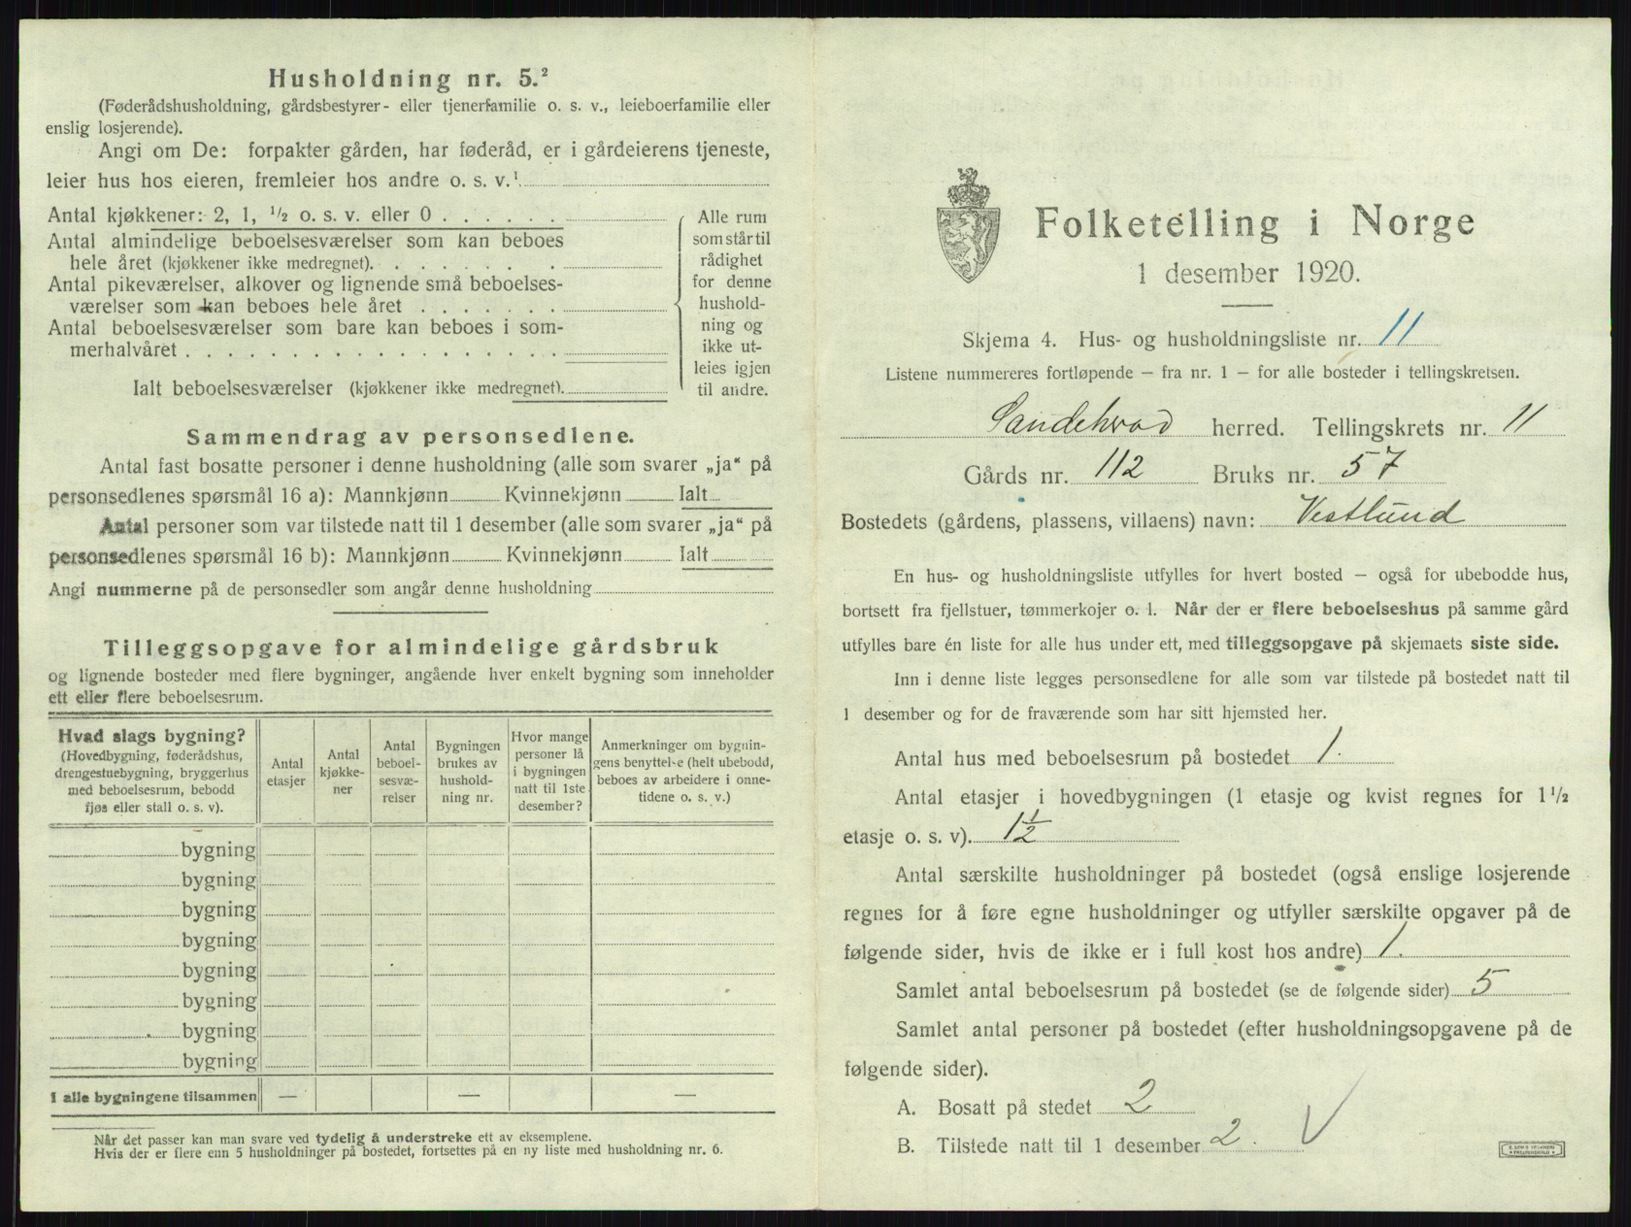 Husholdning nr. 5.²
(Føderådshusholdning, gårdsbestyrer- eller tjenerfamilie o. s. v., leieboerfamilie eller
enslig losjerende).
Angi om De: forpakter gården, har føderåd, er i gårdeierens tjeneste,
leier hus hos eieren, fremleier hos andre o. s. v.¹
Antal kjøkkener: 2, 1, ¹/₂ o. s. v. eller 0 . . . . . .
Antal almindelige beboelsesværelser som kan beboes
hele året (kjøkkener ikke medregnet). . . . . . . . .
Antal pikeværelser, alkover og lignende små beboelses-
værelser som kan beboes hele året . . . . . . .
Antal beboelsesværelser som bare kan beboes i som-
merhalvåret . . . . . . . . . . . . . . . . . .
Ialt beboelsesværelser (kjøkkener ikke medregnet).
Alle rum
som står til
rådighet
for denne
hushold-
ning og
ikke ut-
leies igjen
til andre.
Sammendrag av personsedlene.
Antal fast bosatte personer i denne husholdning (alle som svarer „ja“ på
personsedlenes spørsmål 16 a): Mannkjønn Kvinnekjønn Ialt
Antal personer som var tilstede natt til 1 desember (alle som svarer „ja“ på
personsedlenes spørsmål 16 b): Mannkjønn Kvinnekjønn Ialt
Angi nummerne på de personsedler som angår denne husholdning
Tilleggsopgave for almindelige gårdsbruk
og lignende bosteder med flere bygninger, angående hver enkelt bygning som inneholder
ett eller flere beboelsesrum.
Hvad slags bygning?
(Hovedbygning, føderådshus,
drengestuebygning, bryggerhus
med beboelsesrum, bebodd
fjøs eller stall o. s. v).
Antal
etasjer
Antal
kjøkke-
ner
Antal
beboel-
sesvæ-
relser
Bygningen
brukes av
hushold-
ning nr.
Hvor mange
personer lå
i bygningen
natt til 1ste
desember?
Anmerkninger om bygnin-
gens benyttelse (helt ubebodd,
beboes av arbeidere i onne-
tidene o. s. v.)
bygning
bygning
bygning
bygning
bygning
bygning
bygning
bygning
I alle bygningene tilsammen — — —
Når det passer kan man svare ved tydelig å understreke ett av eksemplene.
Hvis der er flere enn 5 husholdninger på bostedet, fortsettes på en ny liste med husholdning nr. 6.
Folketelling i Norge
1 desember 1920.
Skjema 4. Hus- og husholdningsliste nr. 11
Listene nummereres fortløpende — fra nr. 1 — for alle bosteder i tellingskretsen.
Sandehrad herred. Tellingskrets nr. 11
Gårds nr. 112 Bruks nr. 57
Bostedets (gårdens, plassens, villaens) navn: Vestlund
En hus- og husholdningsliste utfylles for hvert bosted — også for ubebodde hus,
bortsett fra fjellstuer, tømmerkojer o. l. Når der er flere beboelseshus på samme gård
utfylles bare én liste for alle hus under ett, med tilleggsopgave på skjemaets siste side.
Inn i denne liste legges personsedlene for alle som var tilstede på bostedet natt til
1 desember og for de fraværende som har sitt hjemsted her.
Antal hus med beboelsesrum på bostedet 1.
Antal etasjer i hovedbygningen (1 etasje og kvist regnes for 1 ¹/₂
etasje o. s. v). 1 ½
Antal særskilte husholdninger på bostedet (også enslige losjerende
regnes for å føre egne husholdninger og utfyller særskilte opgaver på de
følgende sider, hvis de ikke er i full kost hos andre) 1.
Samlet antal beboelsesrum på bostedet (se de følgende sider) 5
Samlet antal personer på bostedet (efter husholdningsopgavene på de
følgende sider).
A. Bosatt på stedet 2
B. Tilstede natt til 1 desember 2.